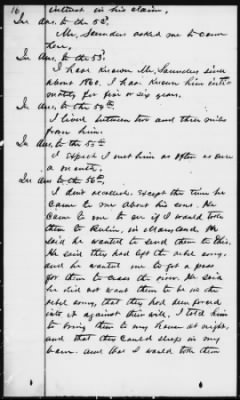 16 interest in his claim.
In Ans. to the 52d,
Mr. Saunders asked me to come
here.
In Ans. to the 53d
I have known Mr. Saunders since
about 1860. I have known him inti-
mately for five or six years.
In Ans. to the 54th,
I lived between two and three miles
from him.
In Ans. to the 55th
I expect I met him as often as once
a month.
In Ans to the 56th,
I don't recollect. Except the time he
came to me about his sons. He
came to me to see if I would take
them to in Maryland. He
said he wanted to send them to this.
He said they had left the rebel army,
and he wanted me to get a pass
for them to cross the river. He said
he did not want them to be in the
rebel army, that they had been forced
into it against their will. I told him
to bring them to my house at night,
and that they could sleep in my
barn. And that I would take them